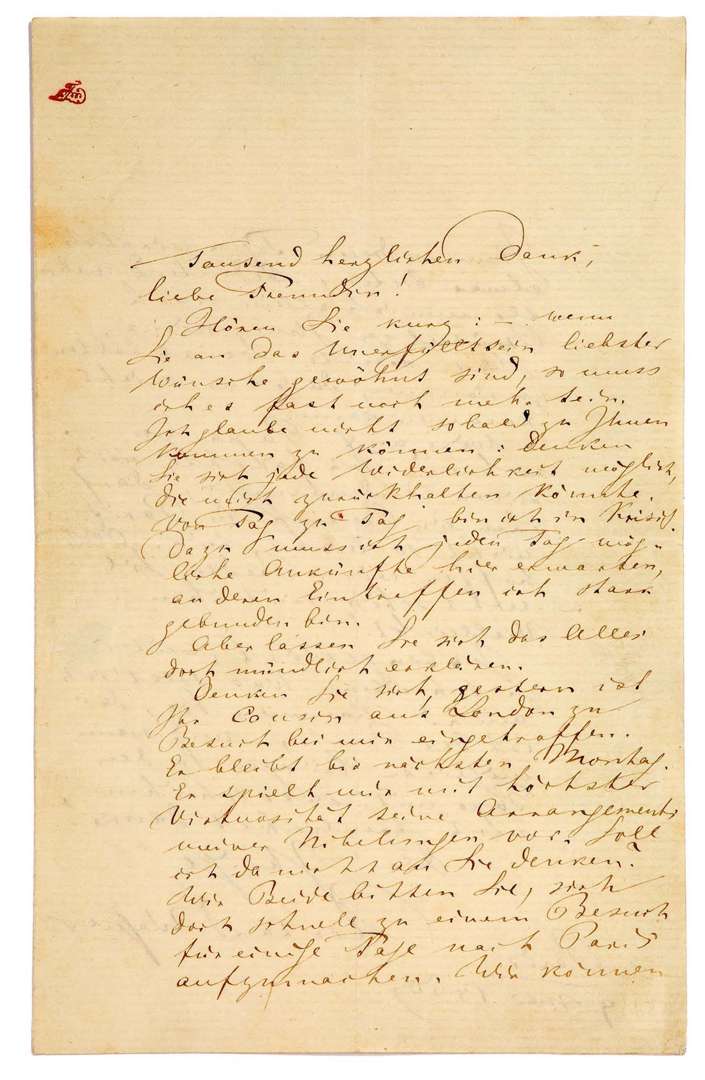 Tausend herzlichen Dank,
liebe Freundin!
Hören Sie kurz: – wenn
Sie an das Unerfülltsein liebster
Wünsche gewöhnt sind, so muss
ich es fast noch mehr sein.
Ich glaube nicht sobald zu Ihnen
kommen zu können: denken
Sie sich jede Widerlichkeit möglich,
die mich zurückhalten könnte.
Von Tag zu Tag bin ich in Krisis.
Dazu muss ich jeden Tag mög-
liche Ankünfte hier erwarten,
an deren Eintreffen ich stark
gebunden bin.
Aber lassen Sie sich das Alles
doch mündlich erklären.
Denken Sie sich, gestern ist
Ihr Cousin aus London zu
Besuch bei mir eingetroffen.
Er bleibt bis nächsten Montag.
Er spielt mir mit höchster
Virtuosität seine Arrangements
meiner Nibelungen vor. Soll
ich da nicht an Sie denken?
Wir Beide bitten Sie, sich
doch schnell zu einem Besuch
für einige Tage nach Paris
aufzumachen. Wir können